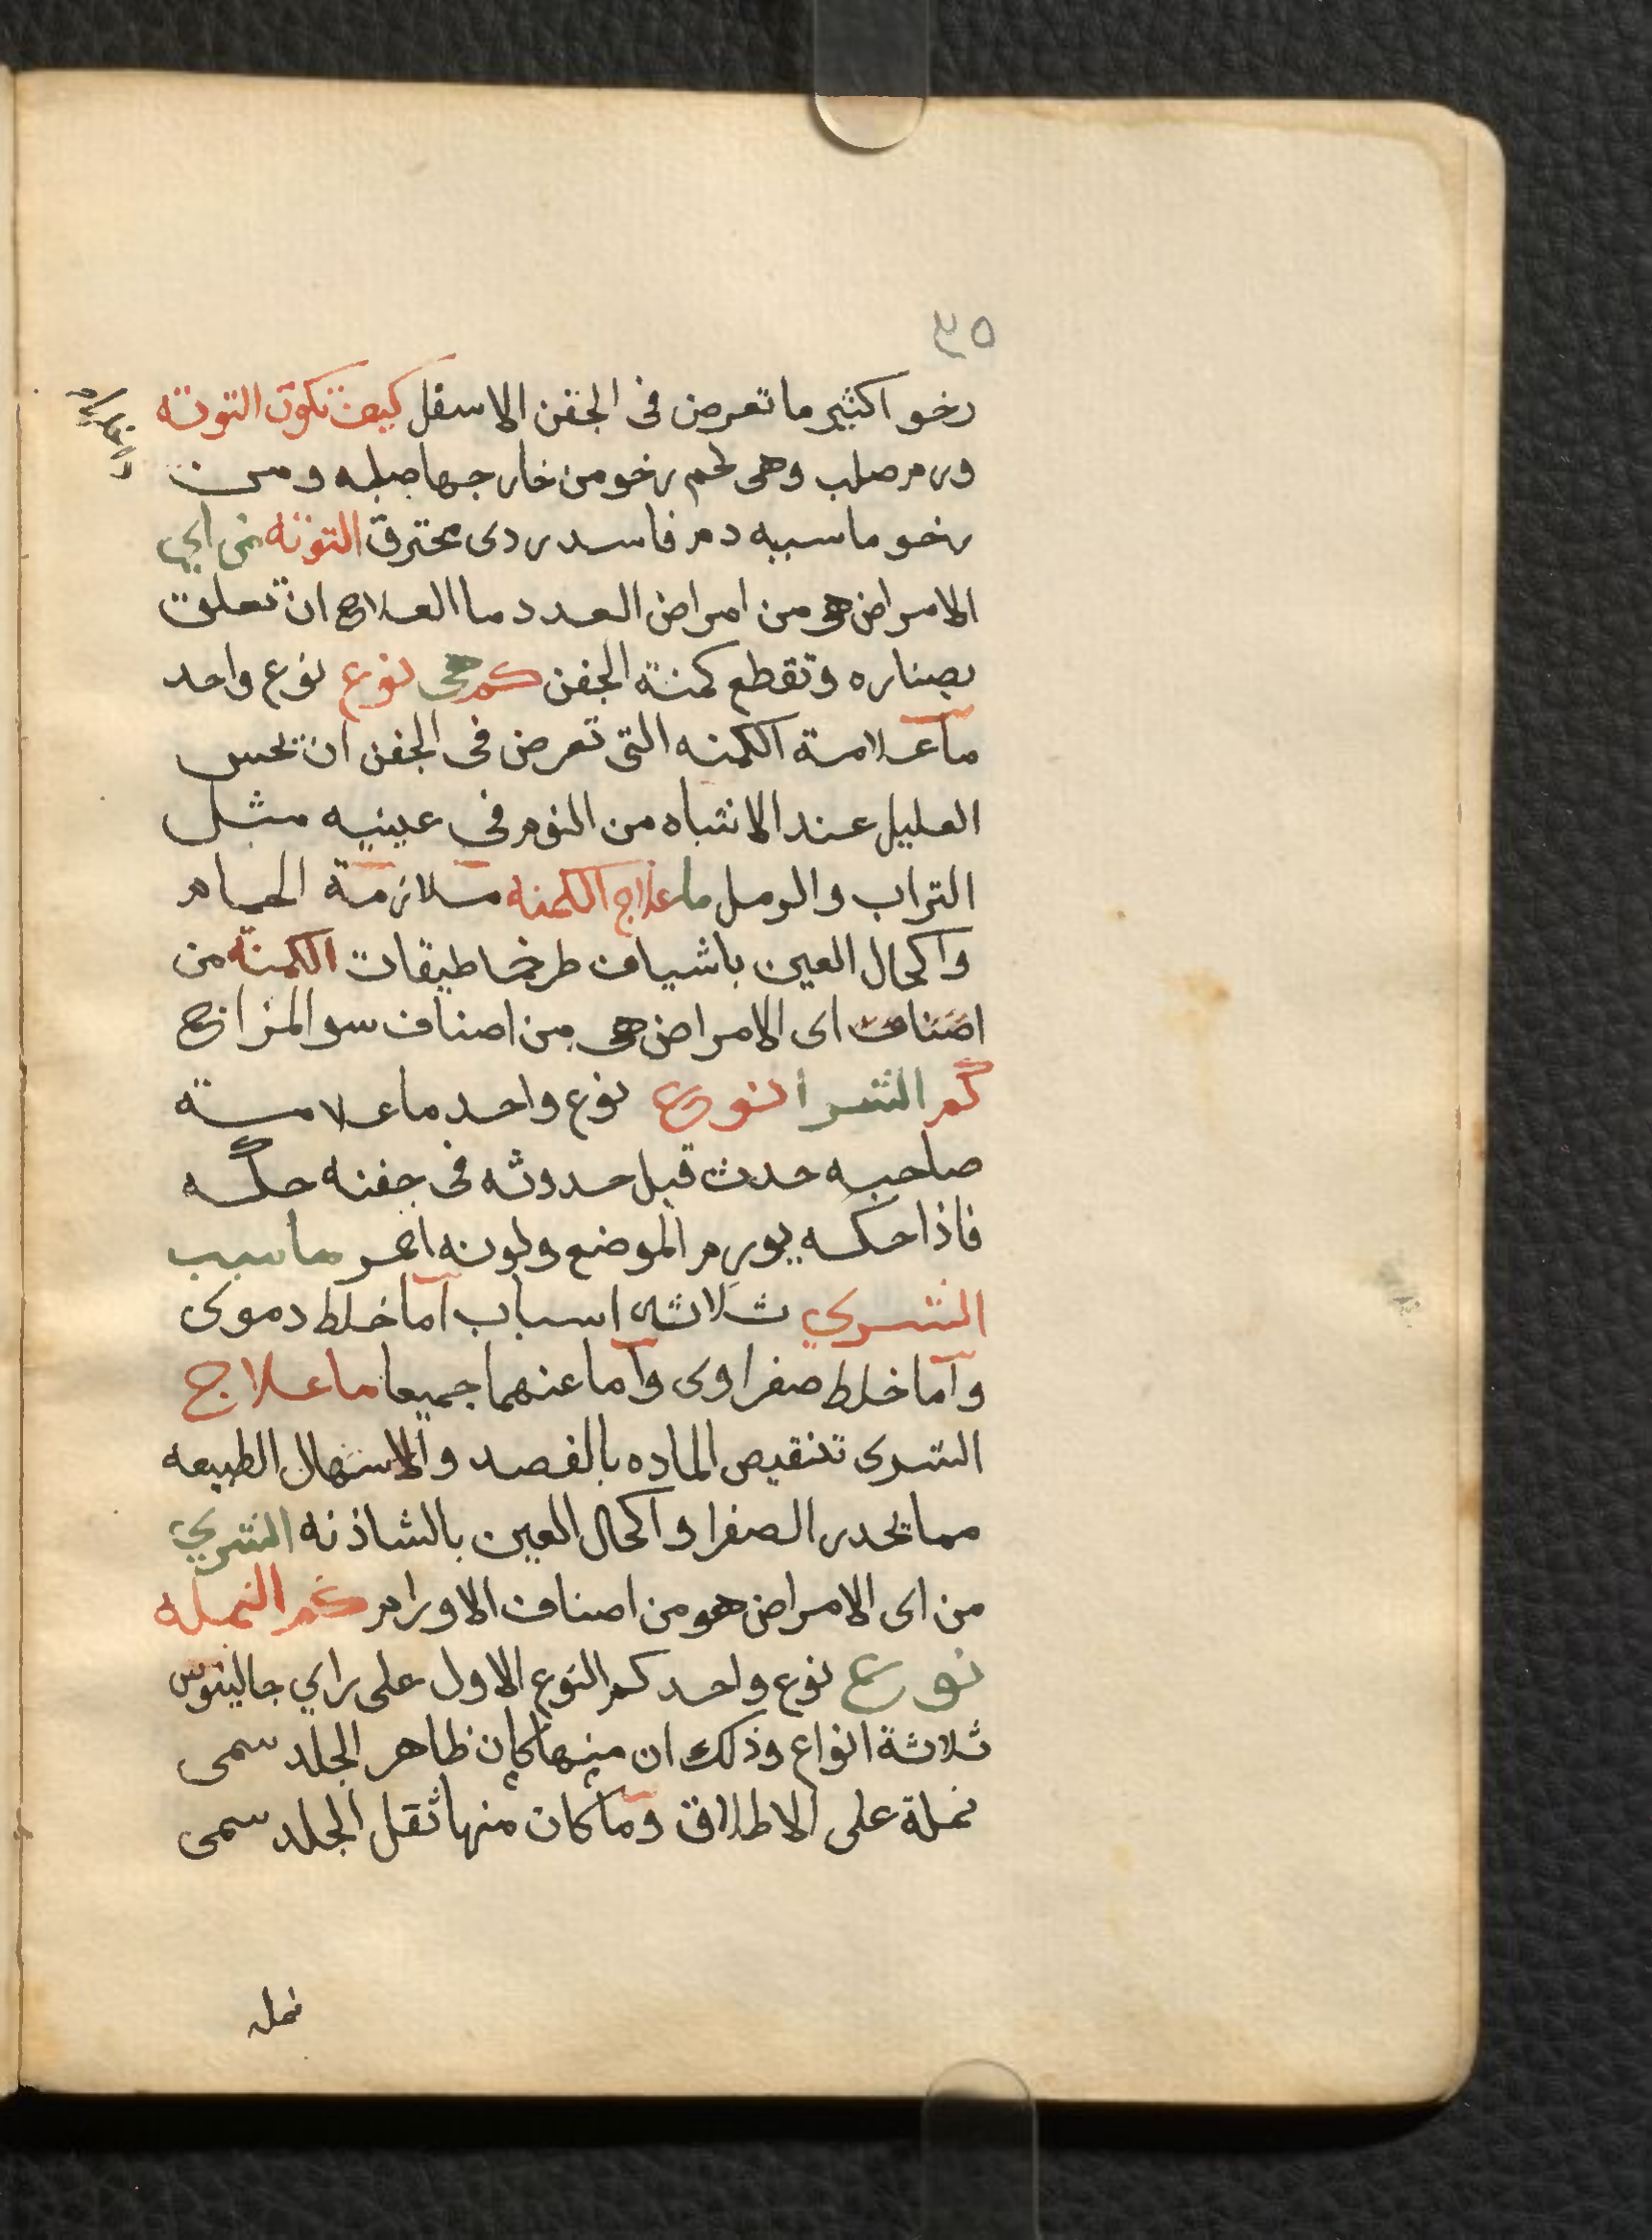 ٣٥
رخو اكثير ما تعرض فى الجفن الاسفل كيف تكون التوته
ورم صلب وهى لحم رخو من خارجها صلبه ومن
رخو ما سببه دم فاسد ردى محترق التوته من اي
الامراض هى من امراض العدد ما العلاج ان تعلق
بصناره وتقطع كمنة الجفن كم هى نوع نوع واحد
ما علامة الكمنه التى تعرض فى الجفن ان يحس
العليل عند الانتباه من النوم فى عينيه مثل
التراب والرمل ما علاج الكمنه ملازمة الحمام
واكحال العين باشياف طرخماطيقات الكمنة من
اصناف اى الامراض هى من اصناف سو المزاج
كم الشرا نوع نوع واحد ما علامة
صاحبه حدث قبل حدوثه فى جفنه حكه
فاذا حكه يورم الموضع ولونه احمر ما سبب
الشري ثلاثه اسباب اما خلط دموى
واما خلط صفراوى واما عنهما جميعا ما علاج
الشرى تنقيص الماده بالفصد والاسهال الطبيعه
مما يحدر الصفرا واكحال العين بالشاذنه الشري
من اى الامراض هو من اصناف الاورام كم النمله
نوع نوع واحد كم النوع الاول على راي جالينوس
ثلاثة انواع وذلك ان منها كان ظاهر الجلد سمى
نملة على الاطلاق وما كان منها ثقل الجلد سمى
نمله